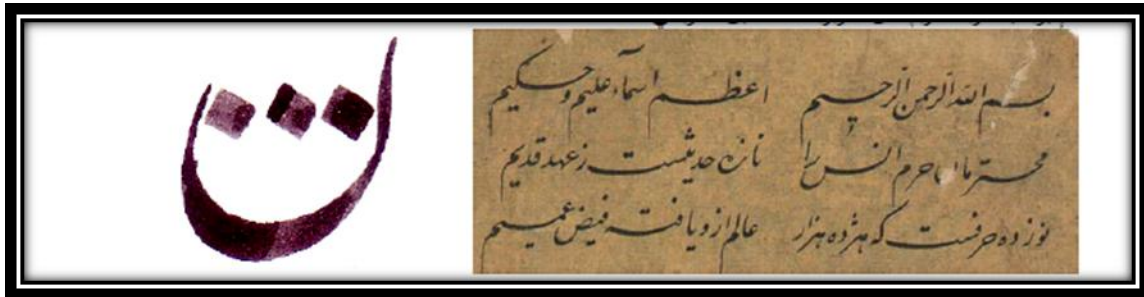 بسم الله الرحمن الرحیم اعظم اسماء علیم و حکیم
حرم انس را تازه حدیثیست ز عهد قدیم
نوزده حرفست که هژده هزار عالم ازو یافته فیض عمیم